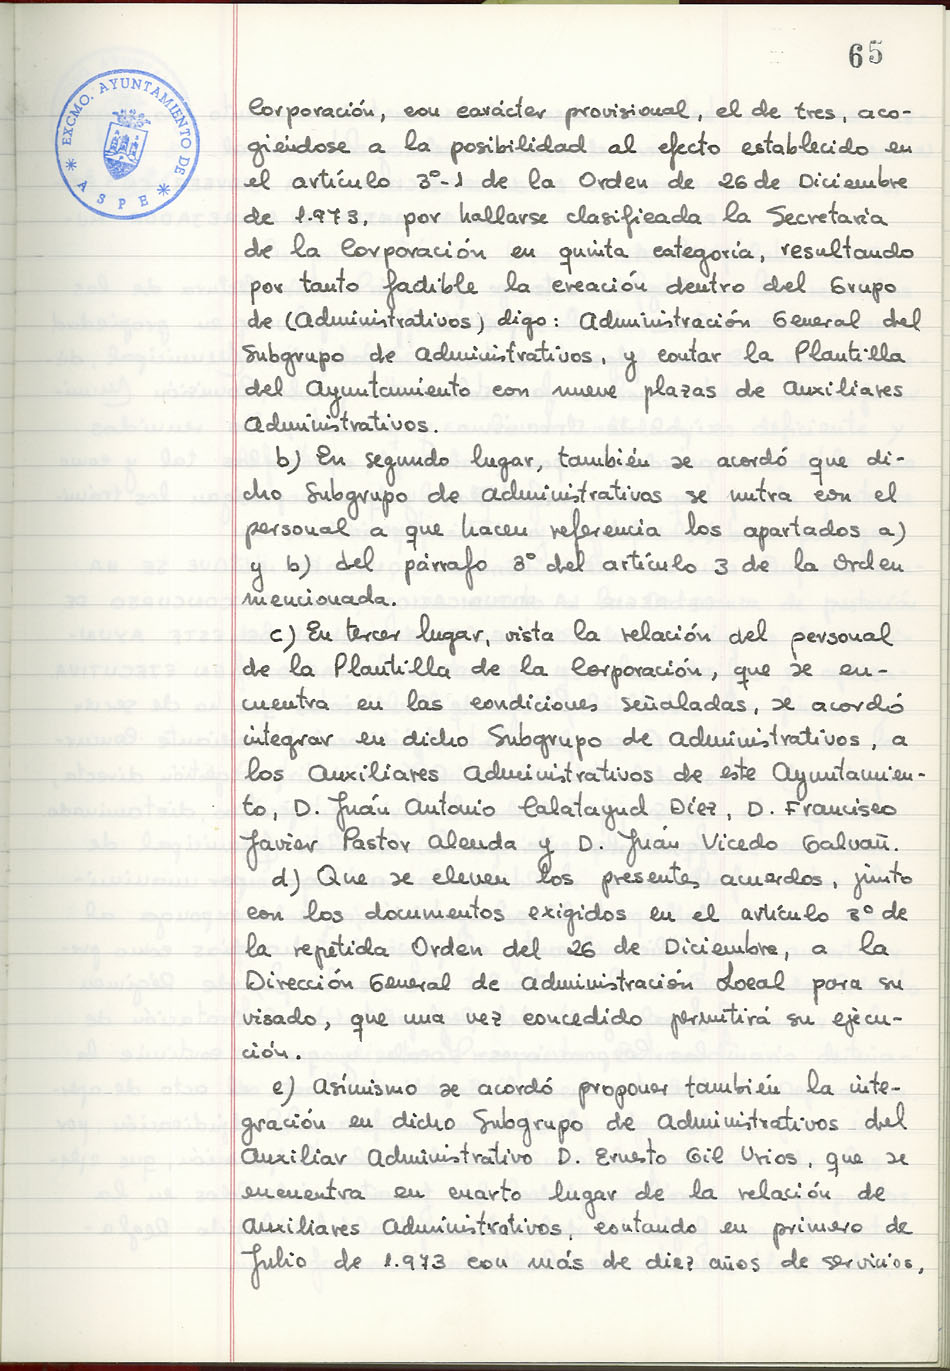 65
EXCMO. AYUNTAMIENTO DE
* ASPE *
Corporación, con carácter provisional, el de tres, aco-
giéndose a la posibilidad al efecto establecido en
el artículo 3º-1 de la Orden de 26 de Diciembre
de 1.973, por hallarse clasificada la Secretaria
de la Corporación en quinta categoría, resultando
por tanto fadible la creación dentro del Grupo
de (Administrativos) digo: Administración General del
Subgrupo de Administrativos, y contar la Plantilla
del Ayuntamiento con nueve plazas de Auxiliares
Administrativos.
b) En segundo lugar, también se acordó que di-
cho Subgrupo de Administrativos se nutra con el
personal a que hacen referencia los apartados a)
y b) del párrafo 3º del artículo 3 de la Orden
mencionada.
c) En tercer lugar, vista la relación del personal
de la Plantilla de la Corporación, que se en-
cuentra en las condiciones señaladas, se acordó
integrar en dicho Subgrupo de Administrativos, a
los Auxiliares Administrativos de este Ayuntamien-
to, D. Juán Antonio Calatayud Díez, D. Francisco
Javier Pastor Alenda y D. Juán Vicedo Galvañ.
d) Que se eleven los presentes acuerdos, junto
con los documentos exigidos en el artículo 3º de
la repetida Orden del 26 de Diciembre, a la
Dirección General de Administración Local para su
visado, que una vez concedido permitirá su ejecu-
ción.
e) Asímismo se acordó proponer también la inte-
gración en dicho Subgrupo de Administrativos del
Auxiliar Administrativo D. Ernesto Gil Urios, que se
encuentra en cuarto lugar de la relación de
Auxiliares Administrativos, contando en primero de
Julio de 1.973 con más de diez años de servicios,